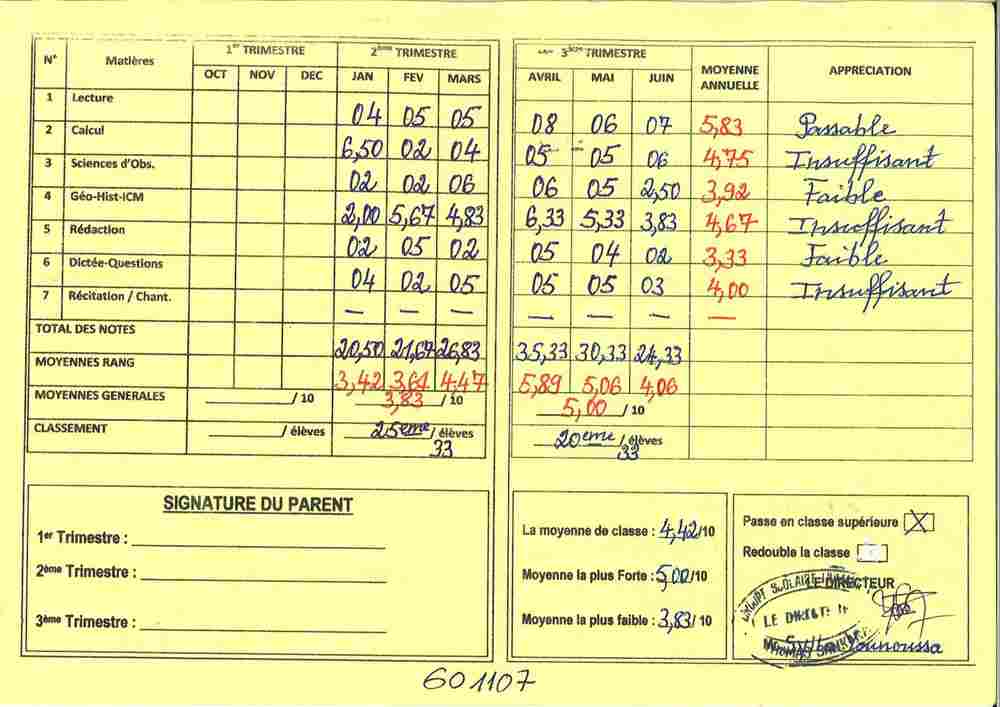 N° Matières 1er TRIMESTRE 2ème TRIMESTRE 3ème TRIMESTRE MOYENNE ANNUELLE APPRECIATION
OCT NOV DEC JAN FEV MARS AVRIL MAI JUIN
1 Lecture 04 05 05 08 06 07 5,83 Passable
2 Calcul 6,50 02 04 05 05 06 4,75 Insuffisant
3 Sciences d'Obs. 02 02 06 06 05 2,50 3,92 Faible
4 Géo-Hist-ICM 2,00 5,67 4,83 6,33 5,33 3,83 4,67 Insuffisant
5 Rédaction 02 05 02 05 04 02 3,33 Faible
6 Dictée-Questions 04 02 05 05 05 03 4,00 Insuffisant
7 Récitation / Chant. — — — — — — —
TOTAL DES NOTES 20,50 21,67 26,83 35,33 30,33 24,33
MOYENNES RANG 3,42 3,61 4,47 5,89 5,06 4,06
MOYENNES GENERALES ________/ 10 3,83 / 10 5,00 / 10
CLASSEMENT ________/ élèves 25ème / élèves 33 20ème / élèves 33
SIGNATURE DU PARENT
1er Trimestre :
2ème Trimestre :
3ème Trimestre :
La moyenne de classe : 4,42/10
Moyenne la plus Forte : 5,00/10
Moyenne la plus faible : 3,83/ 10
Passe en classe supérieure X
Redouble la classe
LE DIRECTEUR
601107